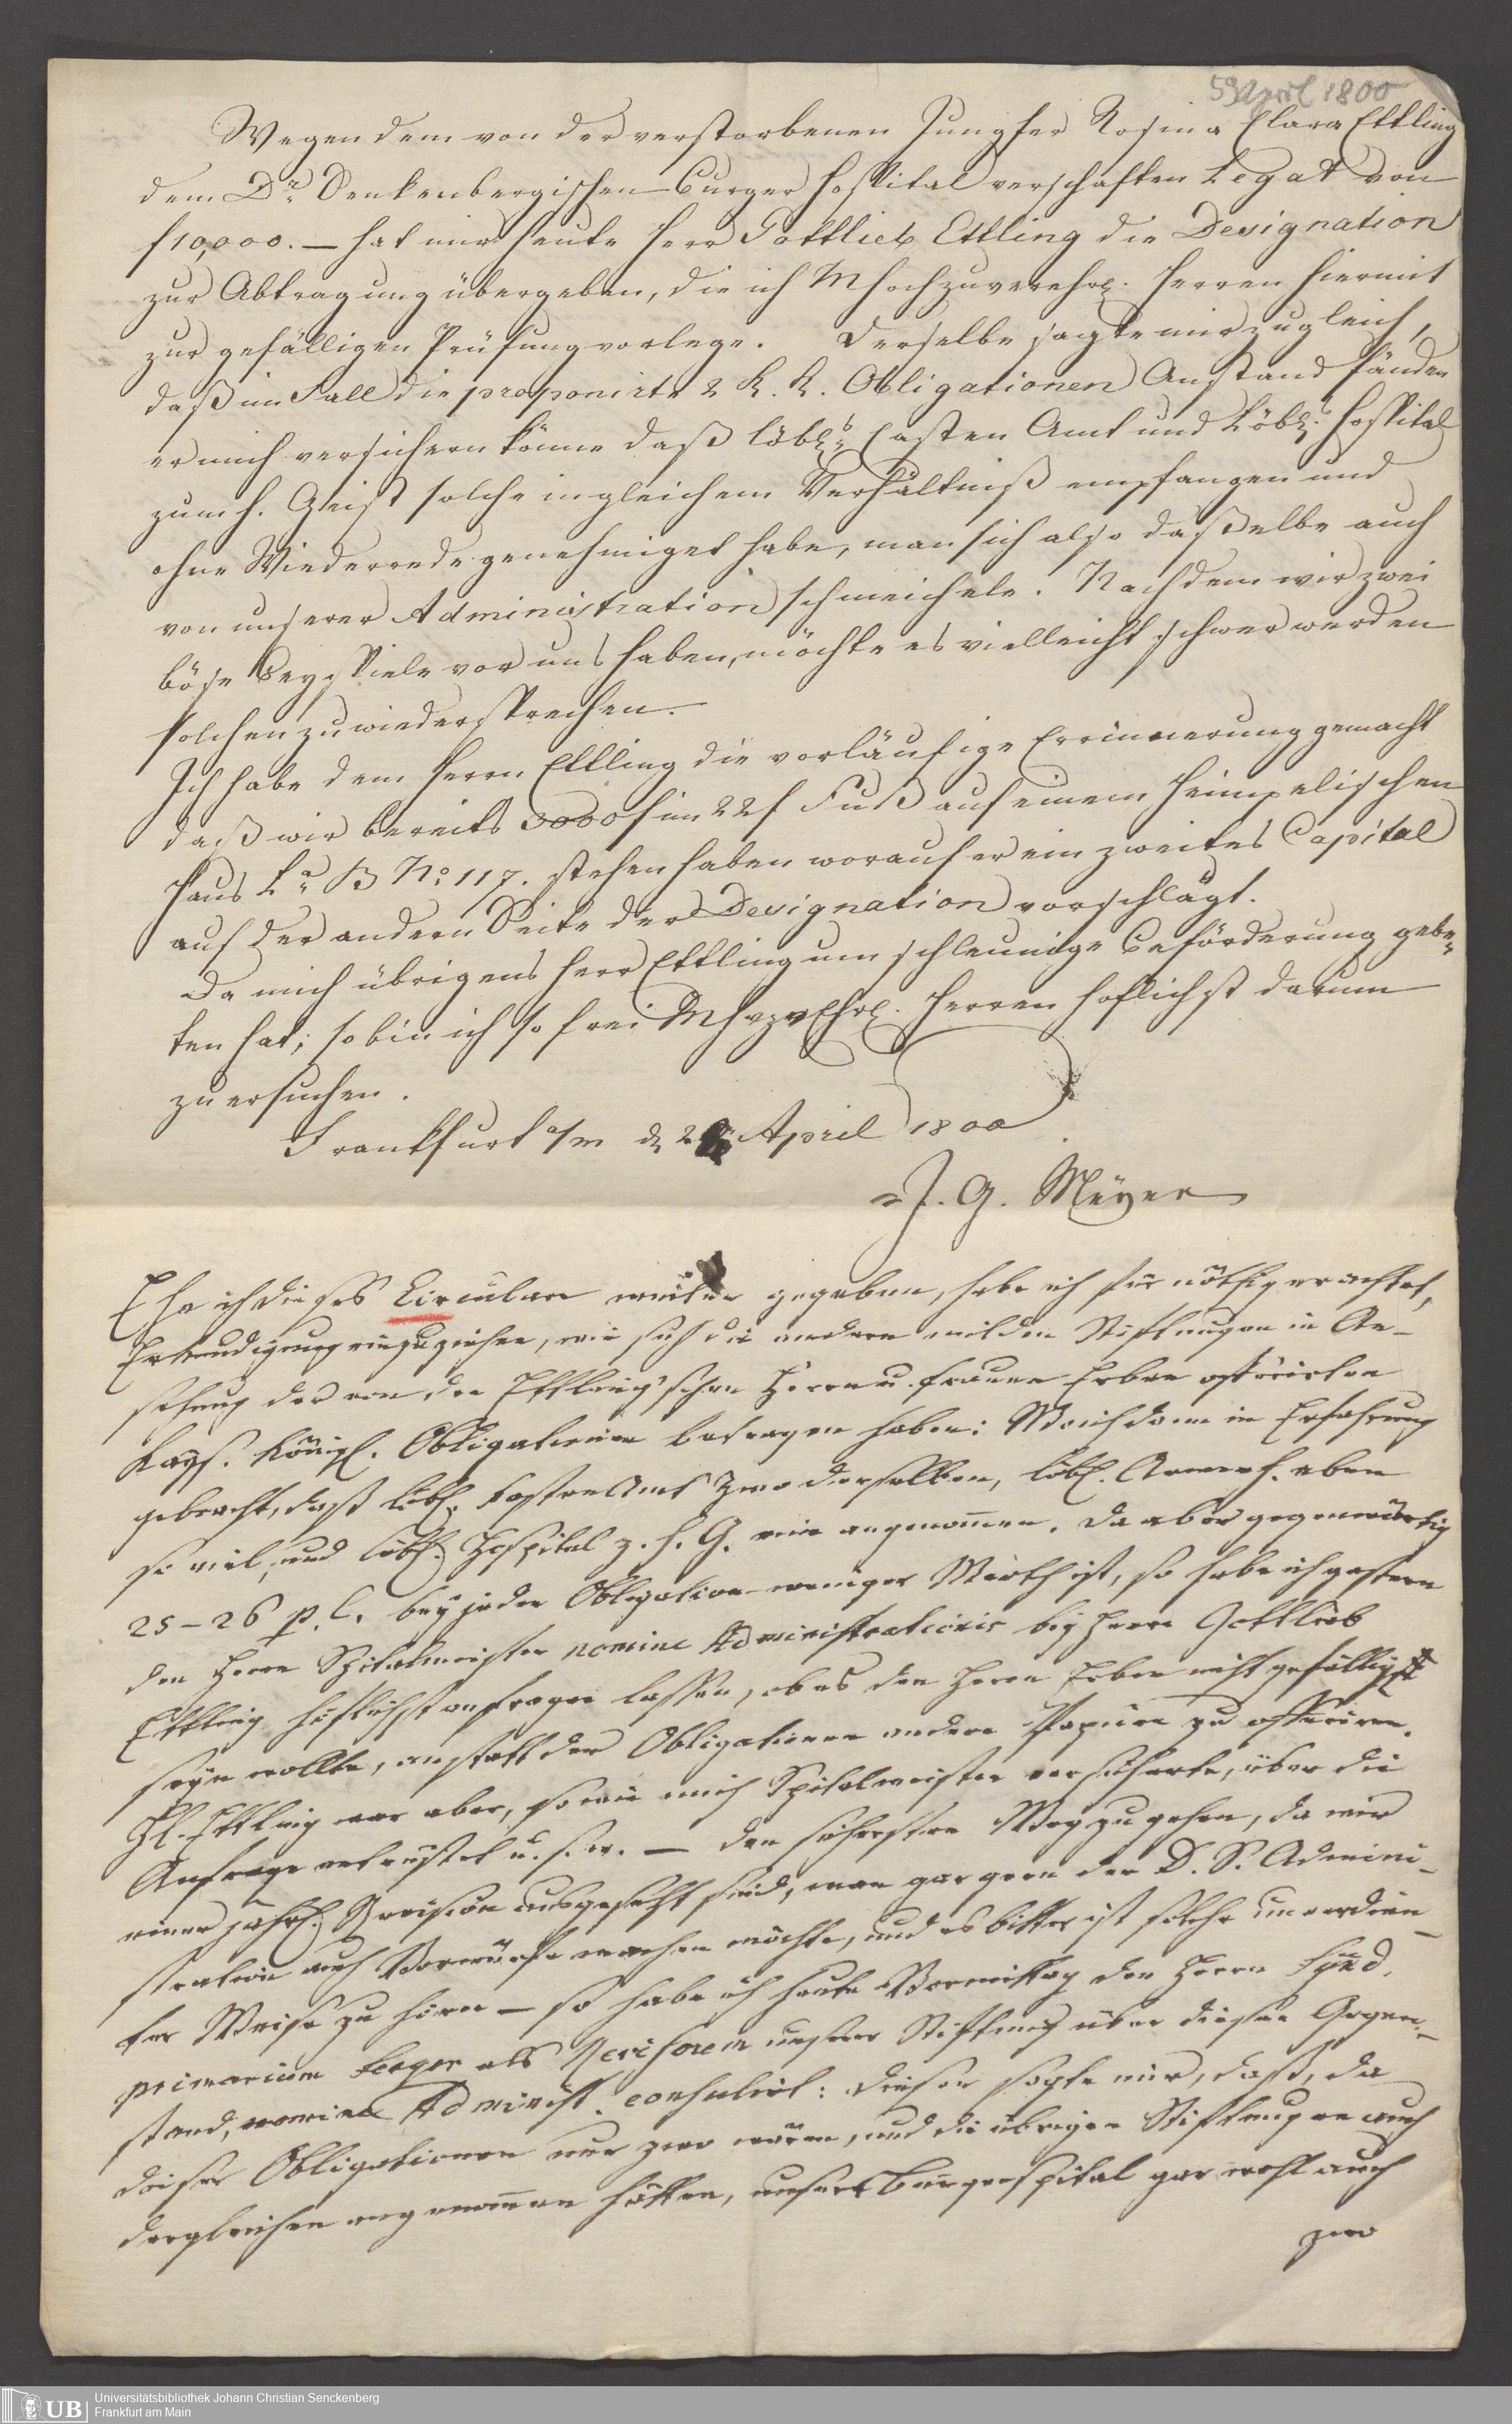 5 April 1800
Wegen dem von der verstorbenen Jungfer Rosina Clara Ettling
dem Dr Senkenbergischen Burger Hospital verschaften Legat von
f 10,000. — hat mir heute Herr Gottlieb Ettling die Designation
zur Abtragung übergeben, die ich M hochzuverehr. Herren hiermit
zur gefälligen Prüfung vorlege. Derselbe sagte mir zugleich,
daß im Fall die proponirte 2 K. K. Obligationen Anstand fänden
er mich versichern könne daß löbl. Casten Amt und Löbl. Hospital
zum h. Geist solche in gleichem Verhältniß empfangen und
ohne Wiederrede genehmiget habe, man sich also daßelbe auch
von unserer Administration schmeichele. Nachdem wir zwei
böse Beyspiele vor uns haben, möchte es vielleicht schwer werden
solchen zu wiedersprechen.
Ich habe dem Herrn Ettling die vorläufige Erinnerung gemacht
daß wir bereits 3000 f im 22 f Fuß auf einem Heimpelischen
Haus La B No 117. stehen haben worauf er ein zweites Capital
auf der andern Seite der Designation vorschlägt.
Da mich übrigens Herr Ettling um schleunige Beförderung gebe-
ten hat; so bin ich so frei Mhzvehr. Herren höflichst darum
zu ersuchen.
Frankfurt a/m d April 1800
J. G. Meyer
Ehe ich dieses Circulare weiter gegeben, habe ich für nöthig erachtet,
Erkundigung einzuziehen, wie sich die andern milden Stiftungen in An-
sehung der von den Ettling'schen Herrn u. Frauen Erben offerirten
Kays. Königl. Obligationen betragen haben: Worich dann in Erfahrung
gebracht, daß löbl. Kasten Amt zwo derselben, löbl. Armenh. eben
so viel, und löbl. Hospital z. h. G. eine angenommen. Da aber gegenwärtig
25–26 p. C. bey jeder Obligation weniger Werth ist, so habe ich gestern
den Herrn Spitalmeister nomine Administrationis bey Herrn Gottlieb
Ettling höflichst anfragen lassen, ob es den Herrn Erben nicht gefälligst
seyn wollte, anstatt der Obligationen andere Papiere zu offeriren.
H. Ettling war aber, so wie mich Spitalmeister versicherte, über die
Anfrage entrüstet u. s. w. — Den sichersten Weg zu gehen, da wir
einer jährl. Revision ausgesetzt sind, man gar gern der D. S. Admini-
stration auch Vorwürfe machen möchte, und es bitter ist solche unverdien-
ter Weise zu hören — so habe ich heute Vormittag den Herrn Synd.
primarium Seeger als Revisorem unserer Stiftung über diesen Gegen-
stand, nomine Administ. consulirt: dieser sagte mir, daß, da
dieser Obligationen nur zwo wären, und die übrigen Stiftungen auch
dergleichen angenommen hätten, unser Bürgerspital gar wohl auch
zwo
Universitätsbibliothek Johann Christian Senckenberg
Frankfurt am Main
UB